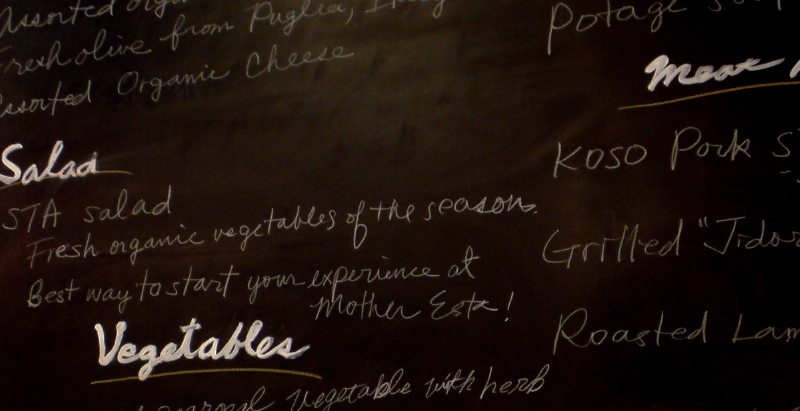 Assorted
Fresh olive from Puglia, Italy
Assorted Organic Cheese
Salad
STA salad
Fresh organic vegetables of the season.
Best way to start your experience at
Mother Esta!
Vegetables
vegetable with herb
Potage
Meat
Koso Pork
Grilled "Jidor
Roasted Lam